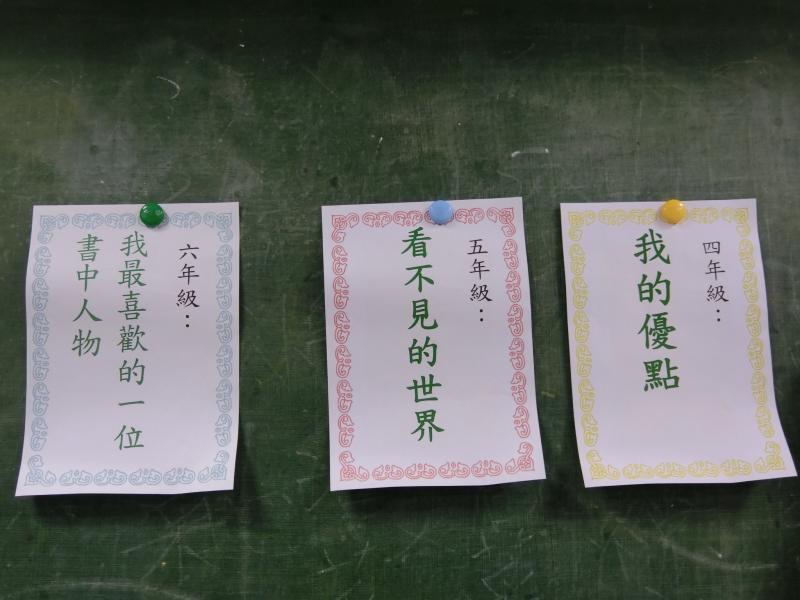 四年級：
我的優點
五年級：
看不見的世界
六年級：
我最喜歡的一位
書中人物